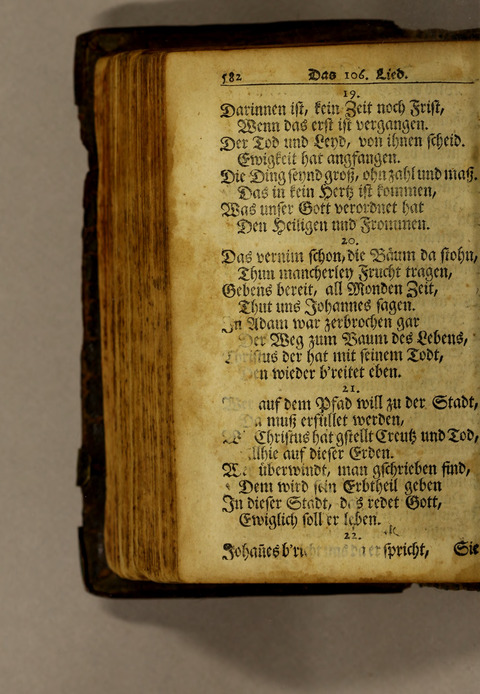 582 Das 106. Lied.
19.
Darinnen ist, kein Zeit noch Frist,
Wenn das erst ist vergangen.
Der Tod und Leyd, von ihnen scheid.
Ewigkeit hat angfangen.
Die Ding seynd groß, ohn zahl und maß.
Das in kein Hertz ist kommen,
Was unser Gott verordnet hat
Den Heiligen und Frommen.
20.
Das vernim schon, die Bäum da stohn,
Thun mancherley Frucht tragen,
Gebens bereit, all Monden Zeit,
Thut uns Johannes sagen.
In Adam war zerbrochen gar
Der Weg zum Baum des Lebens,
Christus der hat mit seinem Todt,
Den wieder b'reitet eben.
21.
Wer auf dem Pfad will zu der Stadt,
Da muß erfüllet werden,
Christus hat gstellt Creutz und Tod,
Allhie auf dieser Erden.
überwindt, man gschrieben find,
Dem wird sein Erbtheil geben
In dieser Stadt, das redet Gott,
Ewiglich soll er leben.
22.
Johañes b'richt uns da er spricht, Sie